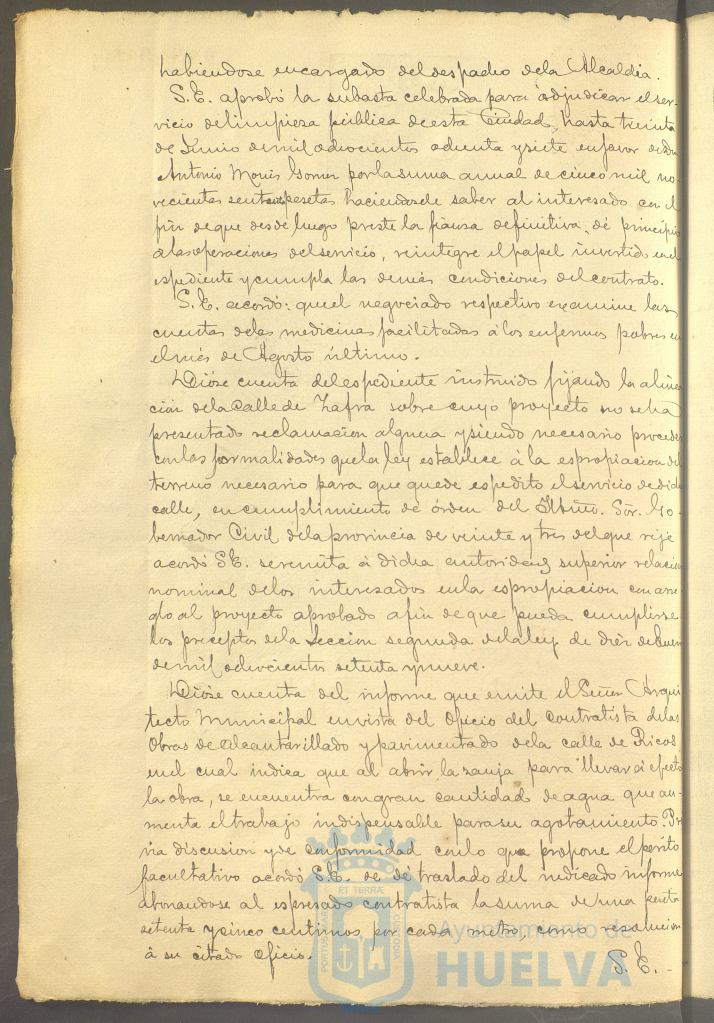 habiendose encargado del despacho dela Alcaldia.
S.E. aprobó la subasta celebrada para adjudicar el ser-
vicio de limpieza pública de esta Ciudad, hasta treinta
de Junio de mil ochocientos ochenta y siete en favor de
Antonio Monis Gomez por la suma anual de cinco mil no-
vecientas pesetas haciendosele saber al interesado con el
fin de que desde luego preste la fianza definitiva, dé principio
a las operaciones del servicio, reintegre el papel invertido en el
espediente y cumpla las demas condiciones del contrato.
S.E. acordó: que el negociado respectivo examine las
cuentas delas medicinas facilitadas á los enfermos pobres en
el mes de Agosto último.
Dióse cuenta del espediente instruido fijando la aline-
ción dela Calle de Zafra sobre cuyo proyecto no se ha
presentado reclamacion alguna y siendo necesario proceder
con las formalidades que la ley establece á la espropiacion del
terreno necesario para que quede espedito el servicio de dicha
calle, en cumplimiento de órden del Iltmo. Sor. Go-
bernador Civil dela provincia de veinte y tres del que rije
acordó S.E. se remita á dicha autoridad superior relacion
nominal delos interesados en la espropiacion con arre-
glo al proyecto aprobado a fin de que pueda cumplirse
los preceptos dela Seccion segunda dela ley de diez de Enero
de mil ochocientos setenta y nueve.
Dióse cuenta del informe que emite el Señor Arqui-
tecto Municipal en vista del oficio del contratista delas
obras de alcantarillado y pavimentado dela calle de Ricos
en el cual indica que al abrir la zanja para llevar á efecto
la obra, se encuentra con gran cantidad de agua que au-
menta el trabajo indispensable para su agotamiento. Pré-
via discusion y de conformidad con lo que propone el perito
facultativo acordó S.E. se dé traslado del indicado informe
abonandose al espresado contratista la suma de una peseta
setenta y cinco centimos por cada metro, como resolucion
á su citado oficio.
S.E.-
PORTUS MARIS ET TERRÆ CUSTODIA
Ayuntamiento de
HUELVA